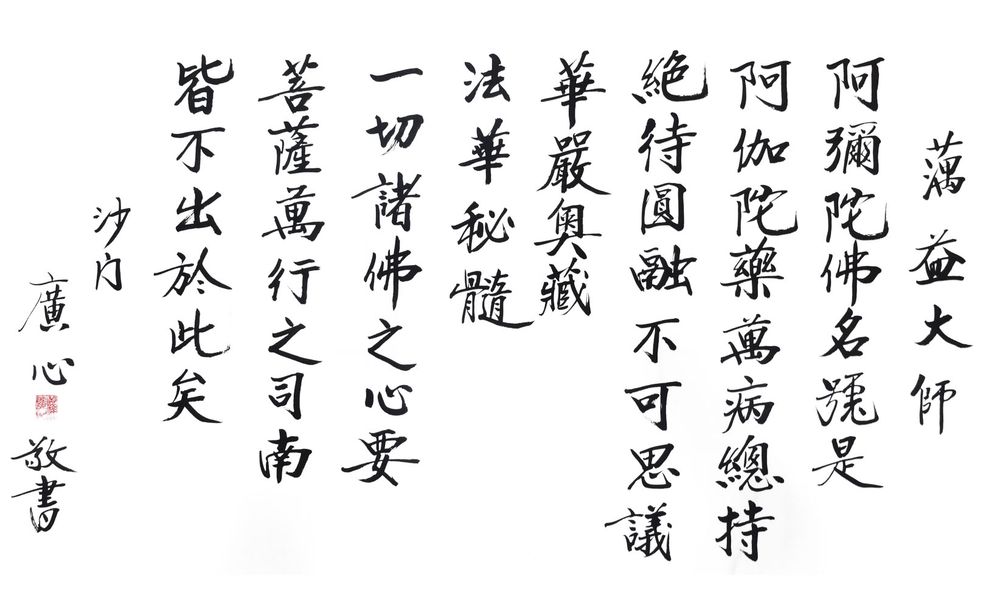 蕅益大師
阿彌陀佛名號是
阿伽陀藥萬病總持
絕待圓融不可思議
華嚴奧藏
法華秘髓
一切諸佛之心要
菩薩萬行之司南
皆不出於此矣
沙门
廣心
敬書